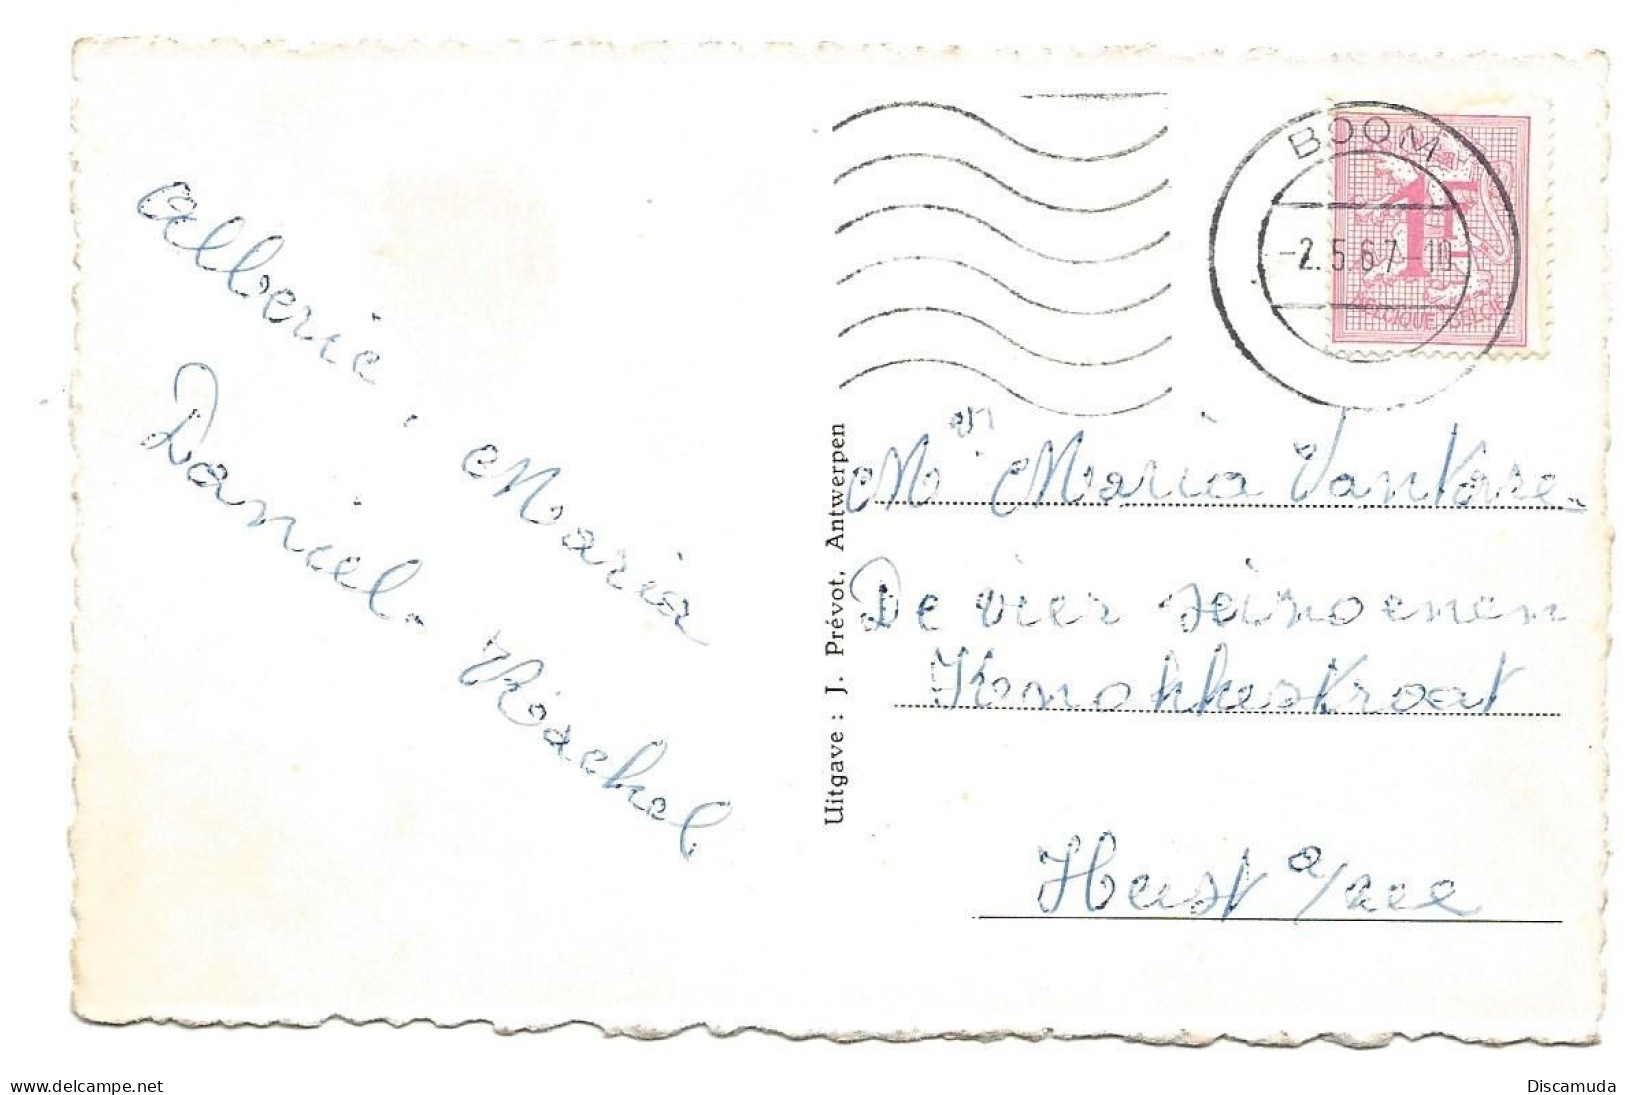 Alberic, Maria
Daniel. Rachel
Uitgave: J. Prévot, Antwerpen
BOOM
-2.5.67-10
1F
BELGIQUE BELGIE
Maria
De vier seinoenen
Knokkestraat
Heist a/zee
www.delcampe.net
Discamuda